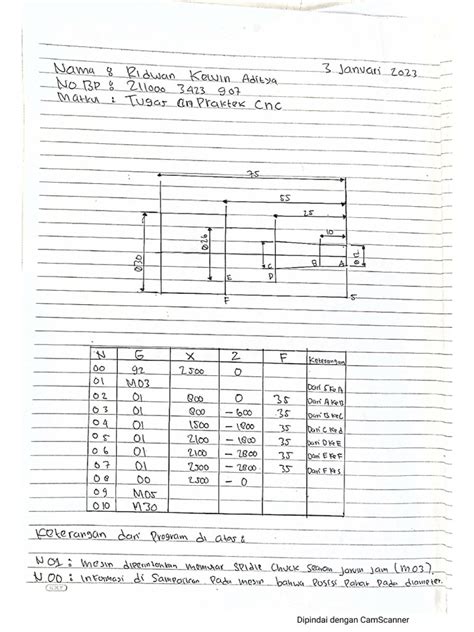 Nama : Ridwan Kelvin Aditya
3 Januari 2023
No BP : 211000 3423 907
Matkul : Tugas Praktek CNC
75
55
25
10
Ø30
Ø26
Ø12
C
B
A
D
E
F
S
N G X Z F Keterangan
00 92 2500 0
01 M03 Dari S ke A
02 01 800 0 35 Dari A ke B
03 01 800 -600 35 Dari B ke C
04 01 1500 -1800 35 Dari C ke d
05 01 2100 -1800 35 Dari D ke E
06 01 2100 -2800 35 Dari E ke F
07 01 2500 -2800 35 Dari F ke S
08 00 2500 -0
09 M05
010 M30
Keterangan dari Program di atas :
N01 : mesin diperintahkan memutar Spidle Chuck Searah Jarum Jam (M03).
N00 : Informasi di Sampaikan Pada mesin bahwa Posisi Pahat Pada diameter
Dipindai dengan CamScanner